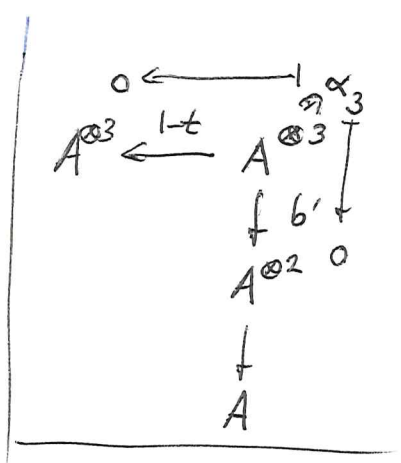 0 ⟵ α₃
A^{⊗3} ⟵ 1-t A^{⊗3}
↓ b' ↓
A^{⊗2} 0
↓
A